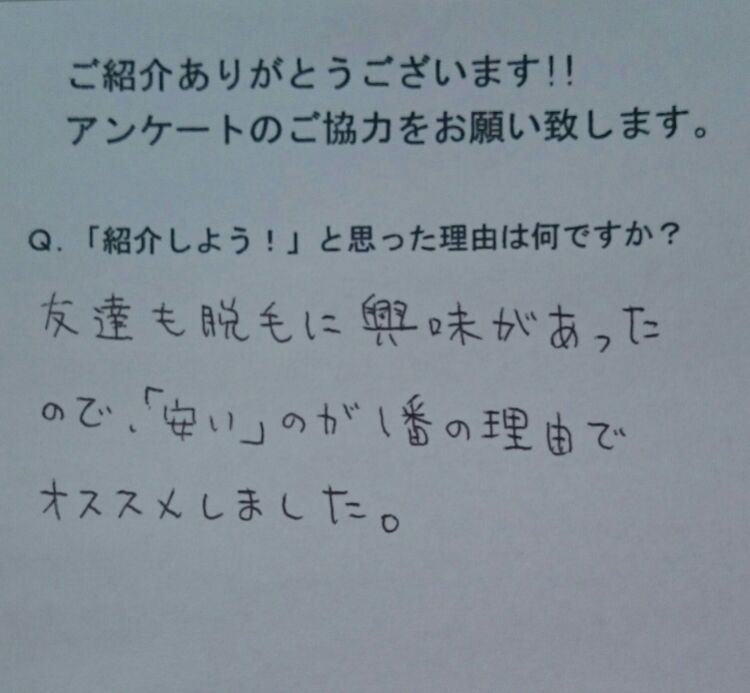 ご紹介ありがとうございます!!
アンケートのご協力をお願い致します。
Q.「紹介しよう！」と思った理由は何ですか？
友達も脱毛に興味があった
ので、「安い」のが1番の理由で
オススメしました。